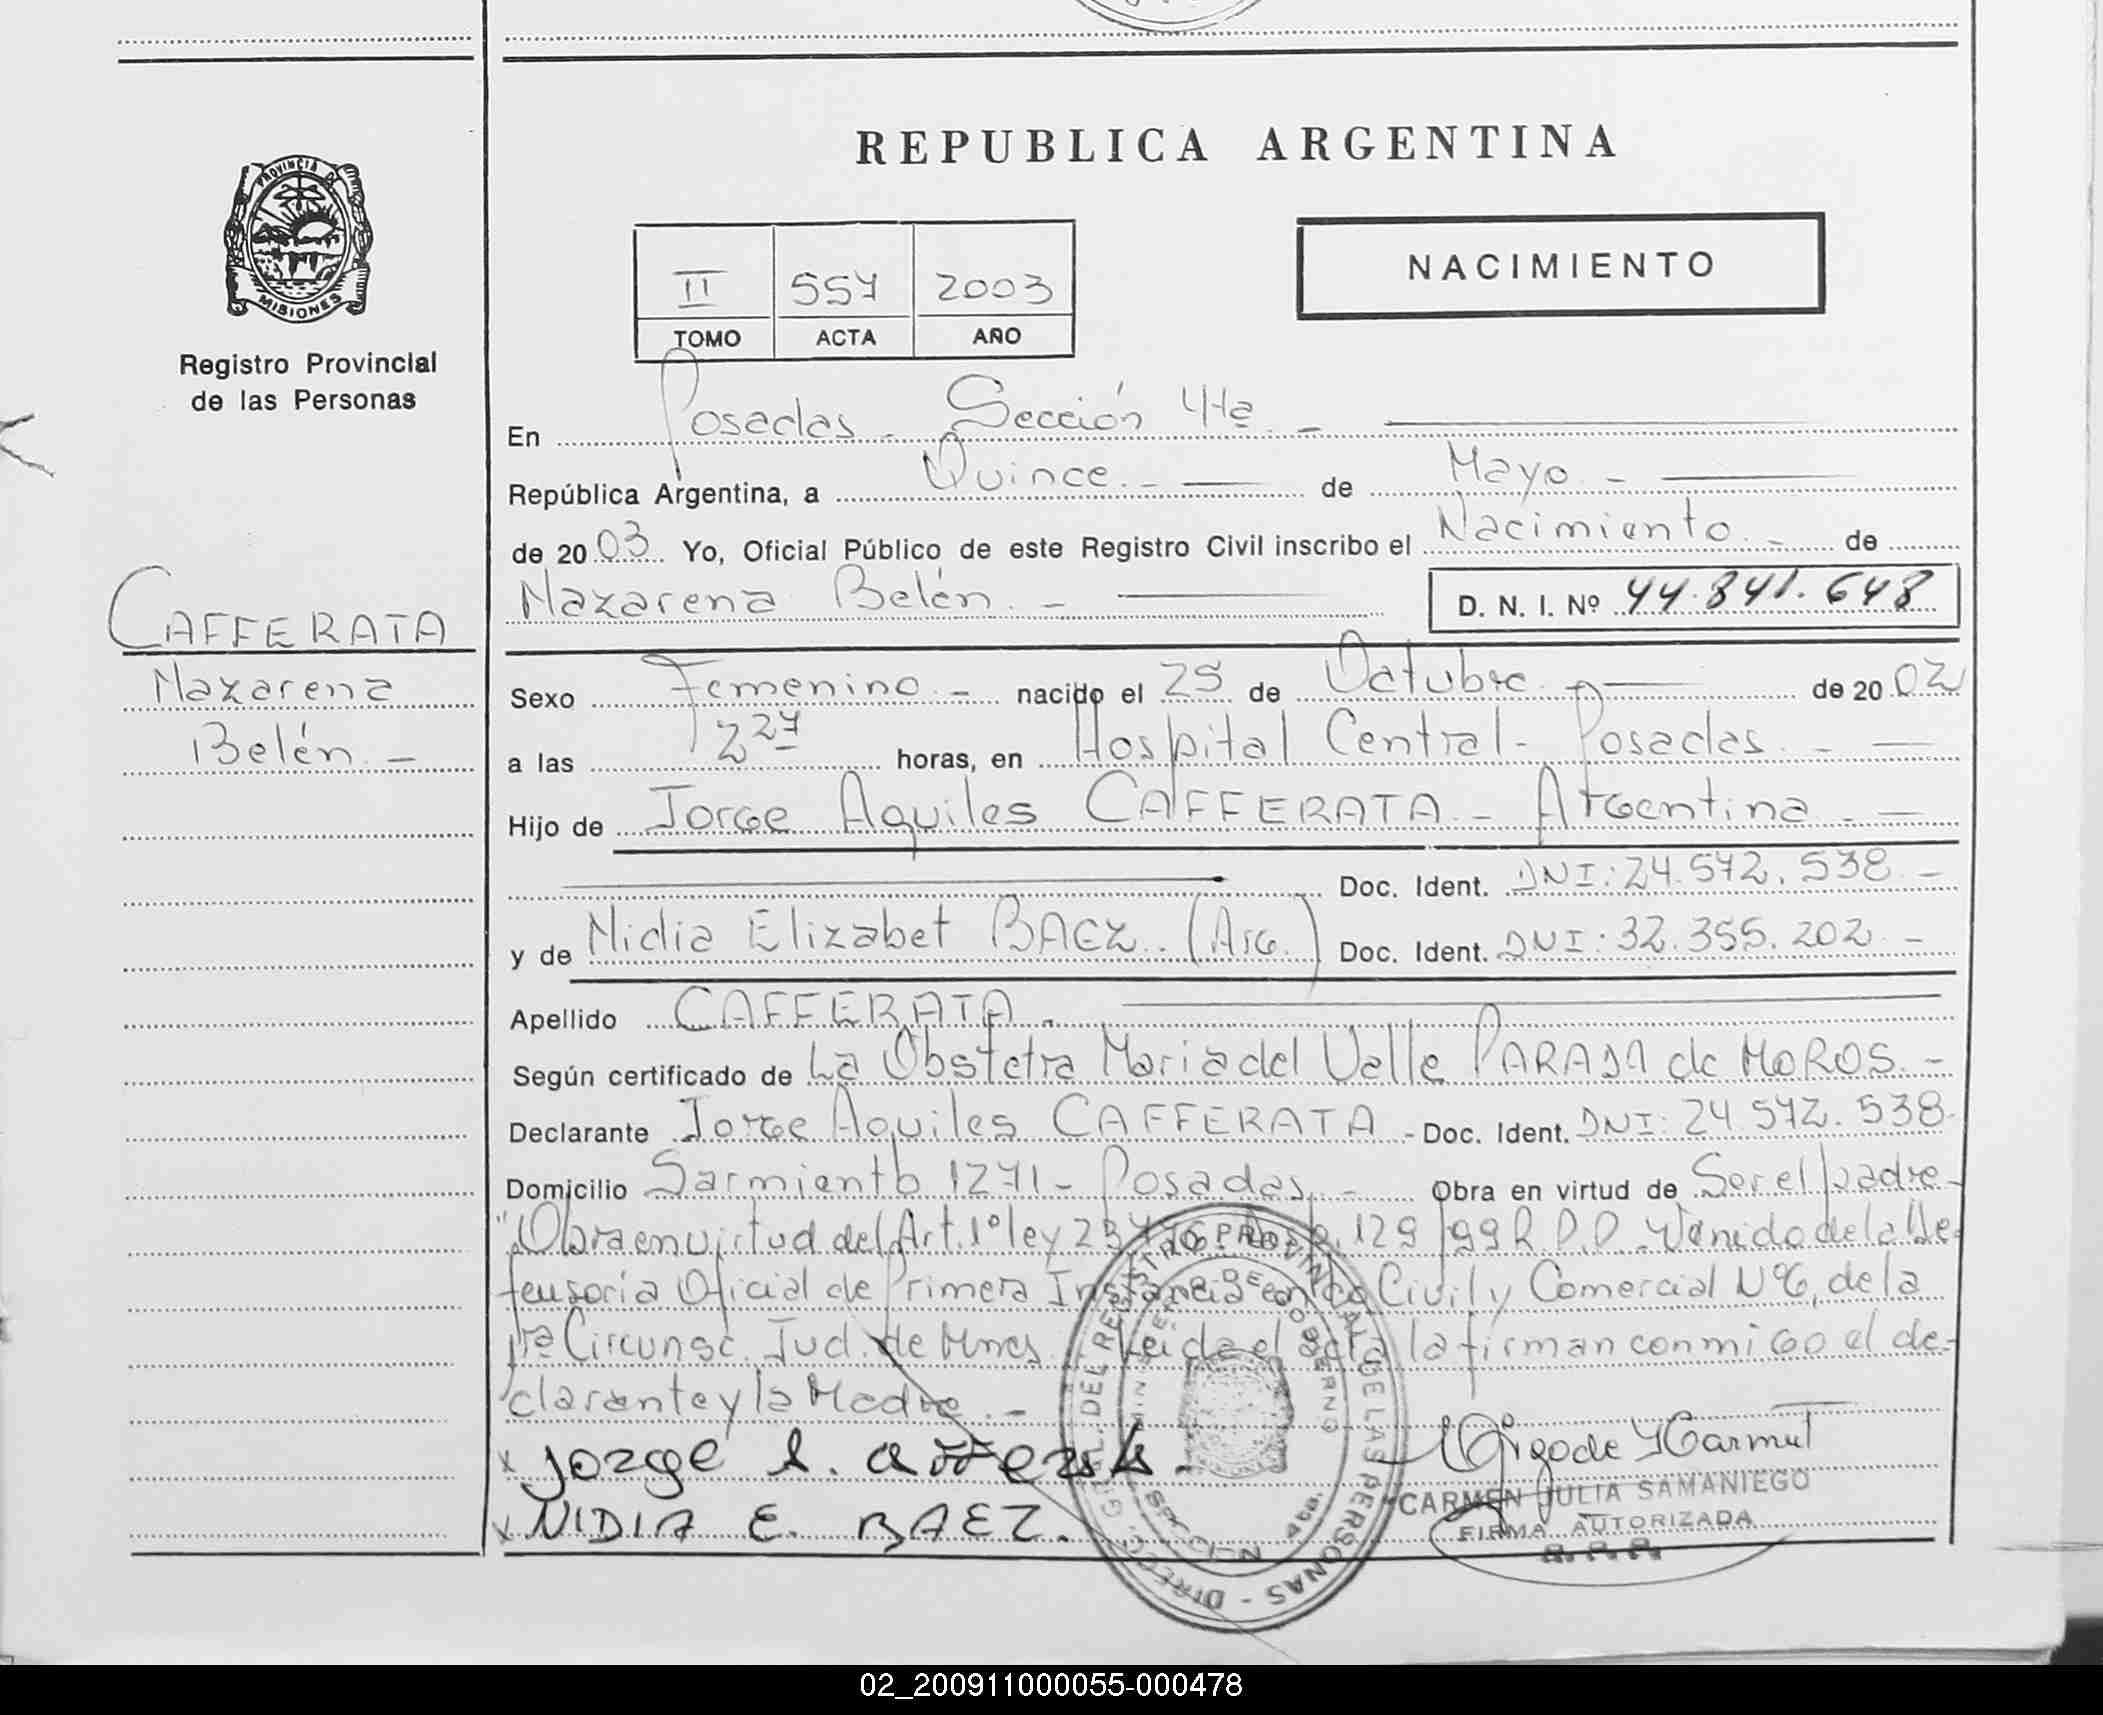 REPUBLICA ARGENTINA
PROVINCIA DE
MISIONES
Registro Provincial
de las Personas
II 557 2003
TOMO ACTA AÑO
NACIMIENTO
En Posadas - Sección 4ta. -
República Argentina, a Quince. - de Mayo. -
de 2003. Yo, Oficial Público de este Registro Civil inscribo el Nacimiento. - de
Nazarena Belén. - D. N. I. Nº 44.841.648
CAFFERATA
Nazarena
Belén. -
Sexo Femenino - nacido el 25 de Octubre. - de 2002
a las 2 27 horas, en Hospital Central - Posadas. -
Hijo de Jorge Aquiles CAFFERATA. - Argentina. -
Doc. Ident. DNI: 24.572.538. -
y de Nidia Elizabet BAEZ. (Arg.) Doc. Ident. DNI: 32.355.202. -
Apellido CAFFERATA.
Según certificado de La Obstetra Maria del Valle PARADA de MOROS. -
Declarante Jorge Aquiles CAFFERATA. - Doc. Ident. DNI: 24.572.538.
Domicilio Sarmiento 1271 - Posadas. - Obra en virtud de Ser el padre -
"Obra en virtud del Art. 1º ley 129/99 R.P.P. Venido de la De-
fensoria Oficial de Primera Instancia en lo Civil y Comercial Nº6, de la
1ra Circunsc. Jud. de Mnes. Leida el acta la firman conmigo el de-
clarante y la Madre. -
x Jorge A.
x NIDIA E. BAEZ.
CARMEN JULIA SAMANIEGO
FIRMA AUTORIZADA
R.P.P.
DIRECC. GRAL. DEL REGISTRO PROVINCIAL DE LAS PERSONAS -
DE GOBIERNO
02_200911000055-000478